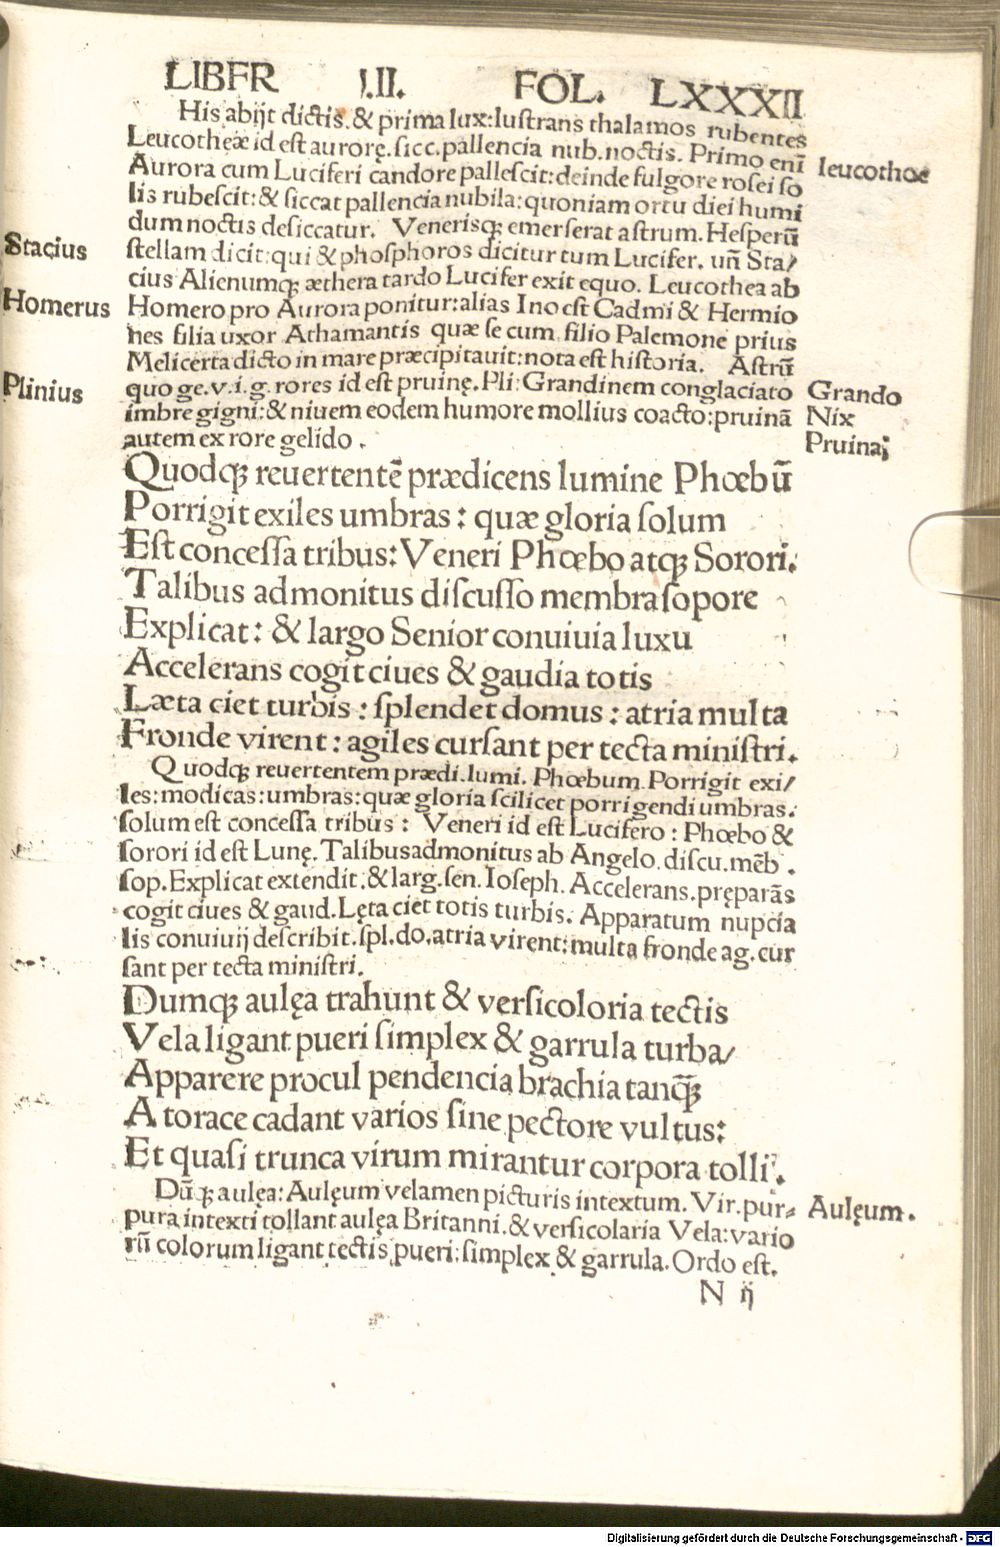 LIBER I.II. FOL. LXXXII
His abijt dictis. & prima lux: lustrans thalamos rubentes
Leucotheæ id est aurorę. sicc. pallencia nub. noctis. Primo enĩ
leucothoe
Aurora cum Luciferi candore pallescit: deinde fulgore rosei so
lis rubescit: & siccat pallencia nubila: quoniam ortu diei humi
dum noctis desiccatur. Venerisqꝫ emerserat astrum. Hesperũ
Stacius
stellam dicit: qui & phosphoros dicitur tum Lucifer. uñ Sta/
cius Alienumqꝫ æthera tardo Lucifer exit equo. Leucothea ab
Homerus
Homero pro Aurora ponitur: alias Ino est Cadmi & Hermio
nes filia uxor Athamantis quæ se cum filio Palemone prius
Melicerta dicto in mare præcipitauit: nota est historia. Astrũ
Plinius
quo ge. v. i. g. rores id est pruinę. Pli: Grandinem conglaciato
Grando
imbre gigni: & niuem eodem humore mollius coacto: pruinã
Nix
autem ex rore gelido.
Pruina;
Quodqꝫ reuertentẽ prædicens lumine Phœbũ
Porrigit exiles umbras: quæ gloria solum
Est concessa tribus: Veneri Phœbo atqꝫ Sorori.
Talibus admonitus discusso membra sopore
Explicat: & largo Senior conuiuia luxu
Accelerans cogit ciues & gaudia totis
Læta ciet turbis: splendet domus: atria multa
Fronde virent: agiles cursant per tecta ministri.
Quodqꝫ reuertentem prædi. lumi. Phœbum Porrigit exi/
les: modicas: umbras: quæ gloria scilicet porrigendi umbras.
solum est concessa tribus: Veneri id est Lucifero: Phœbo &
sorori id est Lunę. Talibus admonitus ab Angelo. discu. mẽb.
sop. Explicat extendit. & larg. sen. Ioseph. Accelerans. pręparãs
cogit ciues & gaud. Lęta ciet totis turbis. Apparatum nupcia
lis conuiuij describit. spl. do. atria virent: multa fronde ag. cur
sant per tecta ministri.
Dumqꝫ aulęa trahunt & versicoloria tectis
Vela ligant pueri simplex & garrula turba/
Apparere procul pendencia brachia tanqꝫ̃
A torace cadant varios sine pectore vultus:
Et quasi trunca virum mirantur corpora tolli.
Dũqꝫ aulęa: Aulęum velamen picturis intextum. Vir. pur-
Aulęum.
pura intexti tollant aulęa Britanni. & versicolaria Vela: vario
rũ colorum ligant tectis pueri: simplex & garrula. Ordo est.
N ij
Digitalisierung gefördert durch die Deutsche Forschungsgemeinschaft - DFG